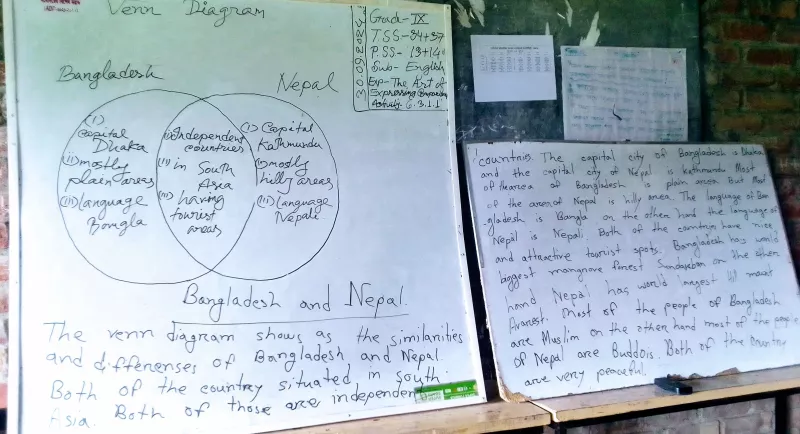 Venn Diagram
Grad- IX
TSS- 34+37
P.SS- 13+14
Sub- English
Exp- The Art of
Expressing Comparison
Activity- 6.3.1.1
Bangladesh
Nepal
(i)
Capital
Dhaka
(ii) mostly
plain areas
(iii) language
Bangla
(i) Independent
countries
(ii) in South
Asia
(iii) having
tourist
areas
(i) Capital
Kathmundu
(ii) mostly
hilly areas
(iii) Language
Nepali
Bangladesh and Nepal.
The venn diagram shows as the similarities
and differenses of Bangladesh and Nepal.
Both of the country situated in south
Asia. Both of those are independent
countries. The capital city of Bangladesh is Dhaka
and the capital city of Nepal is kathmandu Most
of the area of Bangladesh is plain area But Most
of the area of Nepal is hilly area. The language of Ban
gladesh is Bangla on the othen hand the language of
Nepal is Nepali. Both of the countries have nice
and attractive tourist spots. Bangladesh has world
biggest mangrove forest Sundarban on the othen
hand Nepal has world largest mount
Avarest. Most of the people of Bangladesh
are Muslim on the othen hand most of the people
of Nepal are Buddois. Both of the country
are very peaceful.